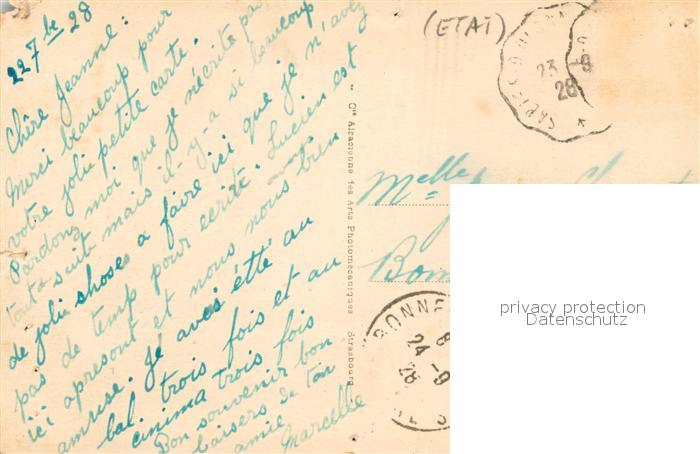 22 7bre 28
Chère Jeanne:
Merci beaucoup pour
votre jolie petite carte.
Pardonz moi que je nécrits pas
tout a suit mais il-y-a si beaucoup
de jolie shoses a faire ici que je n'avez
pas de temp pour ecrite. Lucien est
ici apresont et nous nous bien
amuse. Je avais étté au
bal trois fois et au
cinima trois fois
Bon souvenir bon
baisers de ton
amie
Marcelle
Cie Alsacienne des Arts Photomécaniques Strasbourg
(ETAT)
23 -9
28
Melle
Bon
BONNE
24 -9
28
privacy protection
Datenschutz